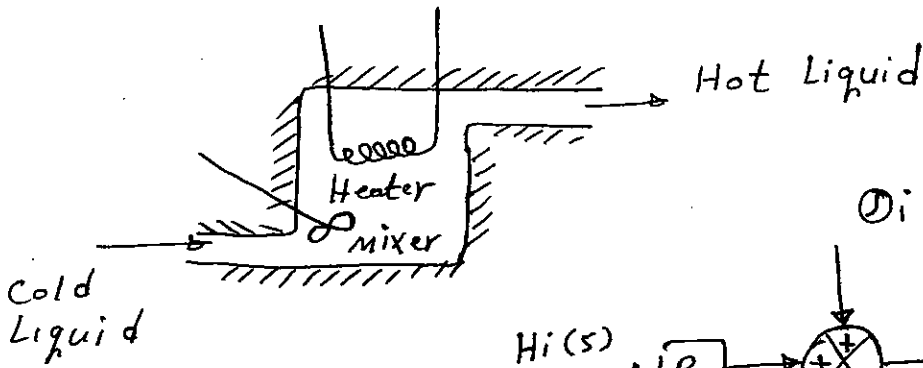 Hot Liquid
Heater
mixer
Cold
Liquid
Hi(s)
R